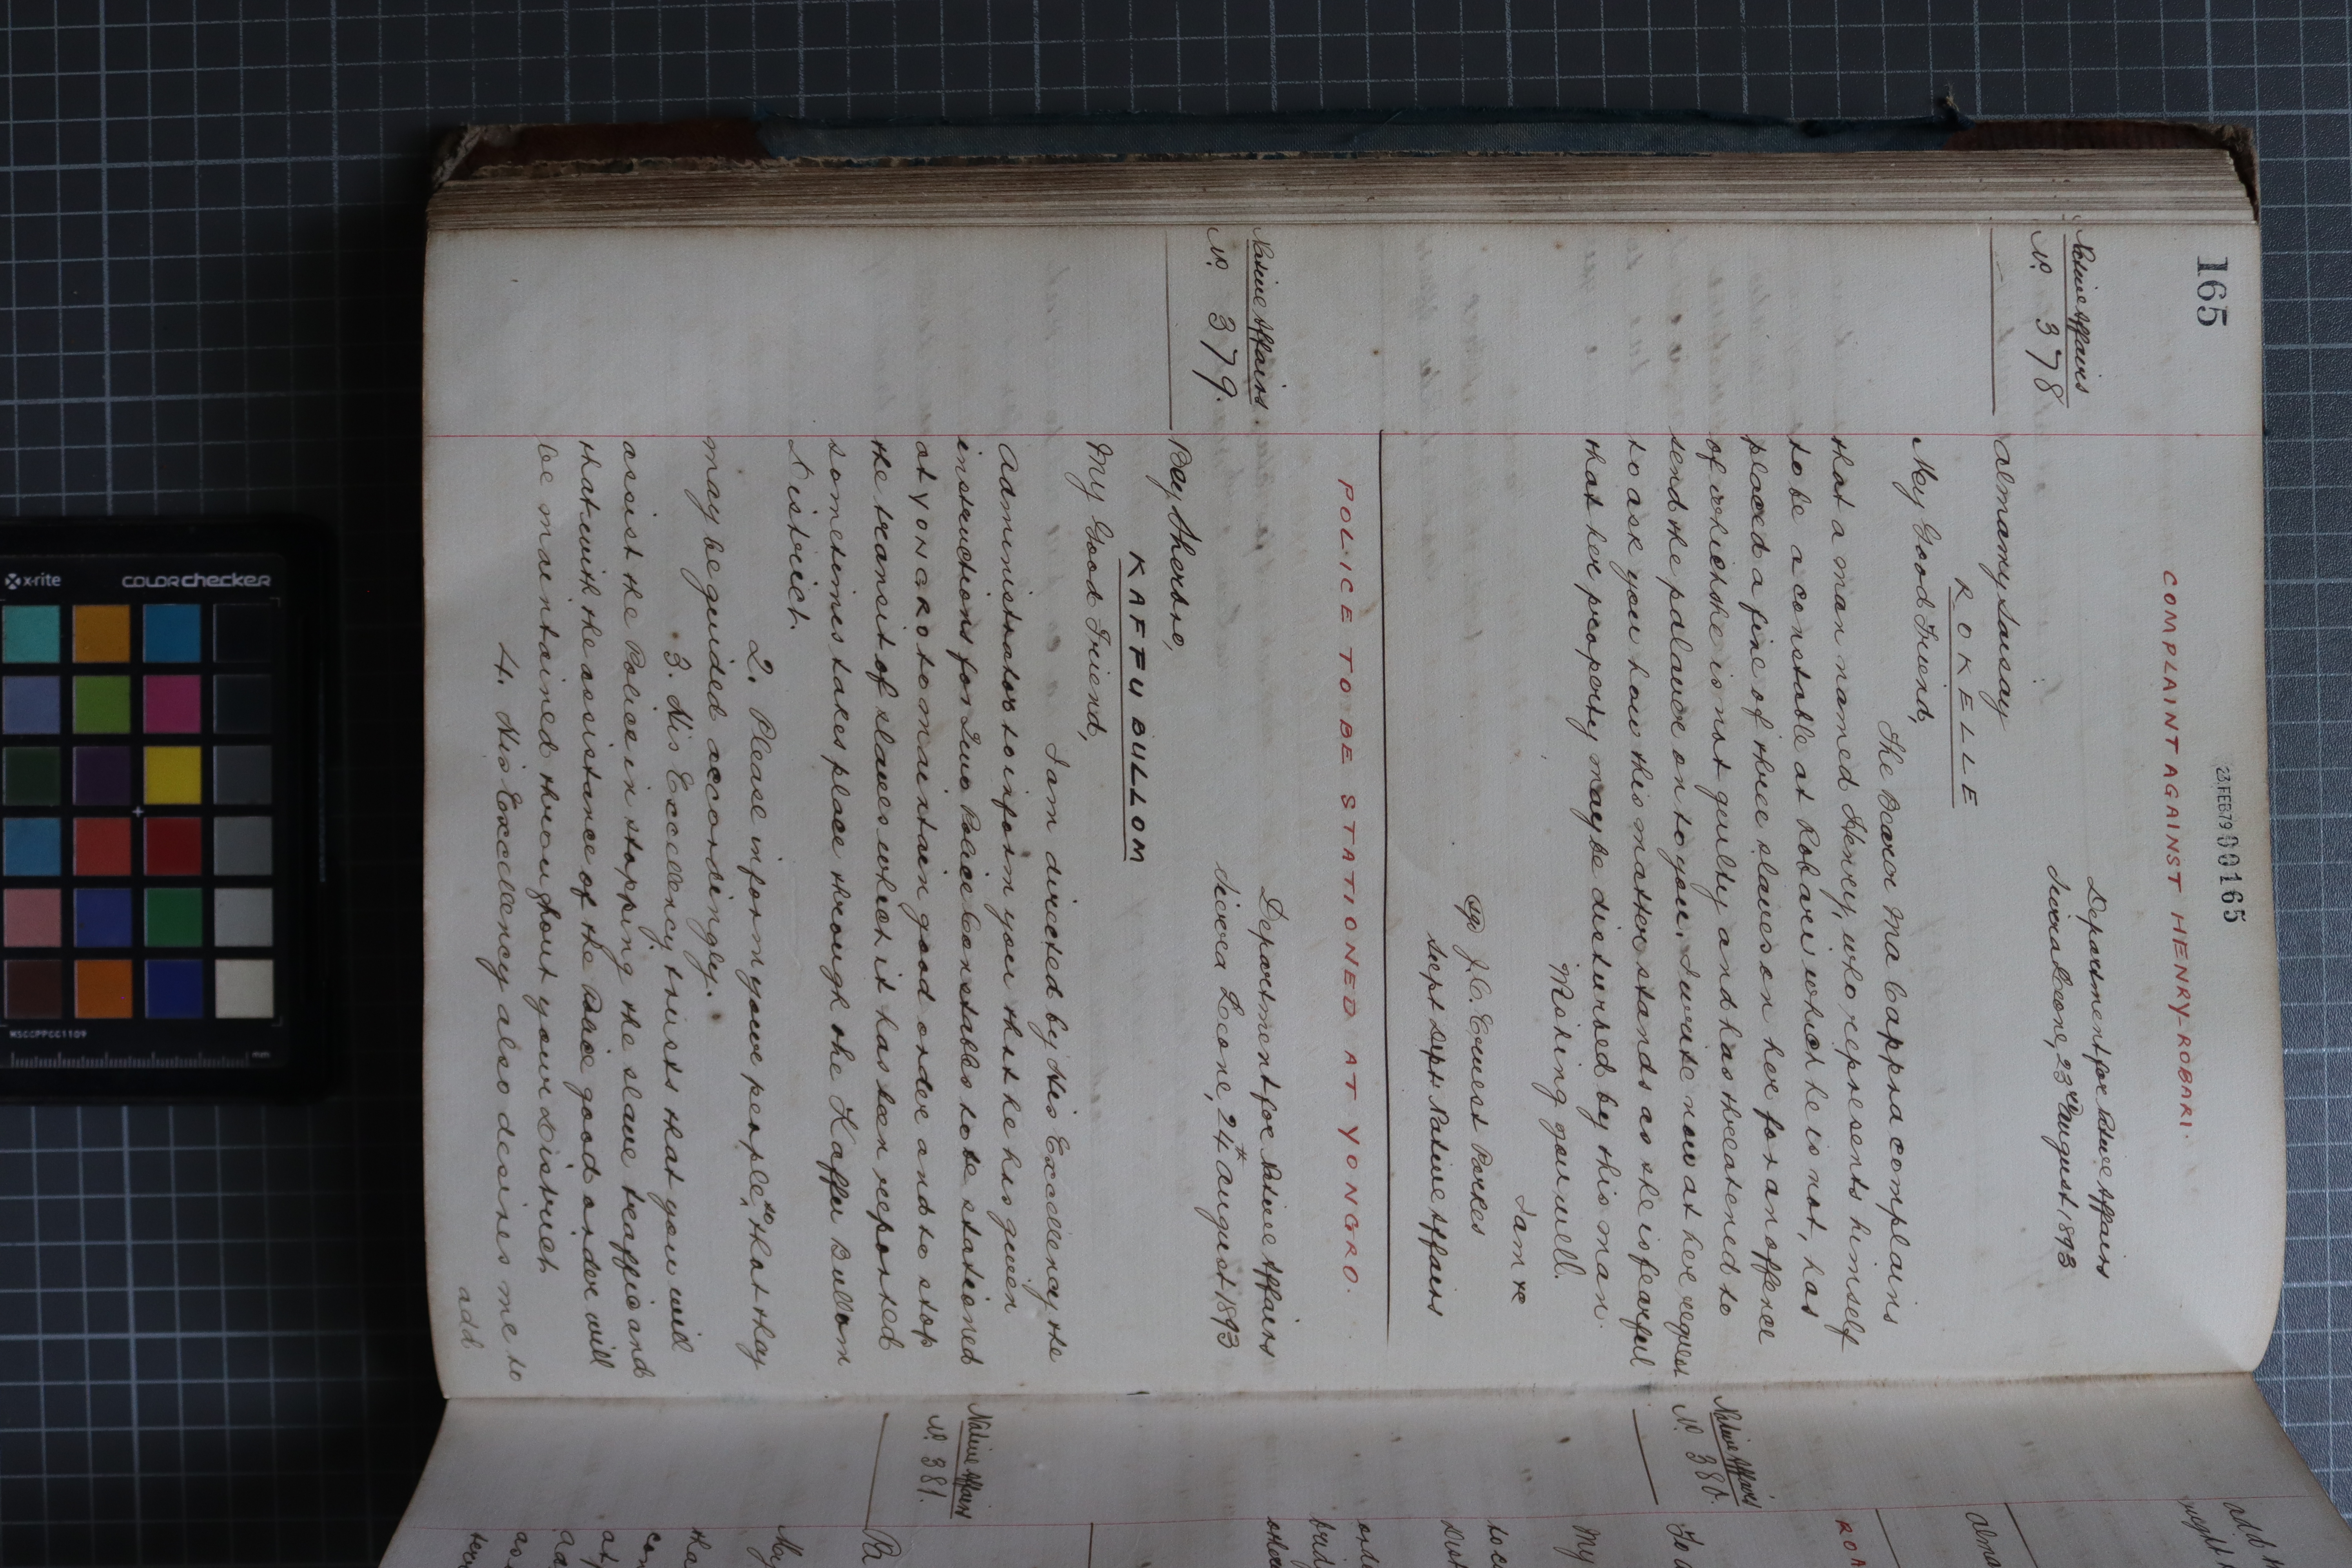 165
23 FEB 79 000165
COMPLAINT AGAINST HENRY-ROBARI.
Native Affairs
No. 378
Department for Native Affairs
Sierra Leone, 23rd August 1893
Almamy Saisay
ROKELLE
My Good Friend,
The Bearer Ma Cappra complains
that a man named Henry, who represents himself
to be a constable at Robari which he is not, has
placed a fine of three slaves on her for an offence
of which she is not guilty and has threatened to
send the palaver on to you. I write now at her request
to ask you how this matter stands as she is fearful
that her property may be disturbed by this man.
Wishing you well.
I am &c
sgd J.C. Ernest Parkes
Supt Dept. Native Affairs
POLICE TO BE STATIONED AT YONGRO.
Native Affairs
No. 379.
Department for Native Affairs
Sierra Leone, 24th August 1893
Bey Sherbro,
KAFFU BULLOM
My Good Friend,
I am directed by His Excellency the
Administrator to inform you that he has given
instructions for two Police Constables to be stationed
at YONGRO to maintain good order and to stop
the transit of slaves which it has been reported
sometimes takes place through the Kaffu Bullom
District.
2. Please inform your people, so that they
may be guided accordingly.
3. His Excellency trusts that you will
assist the Police in stopping the slave traffic and
that with the assistance of the Police good order will
be maintained throughout your District.
4. His Excellency also desires me to
add
add
Native Affairs
No. 380.
My
Native Affairs
No. 381.
x-rite
colorchecker
MSCCPPCC1109
mm